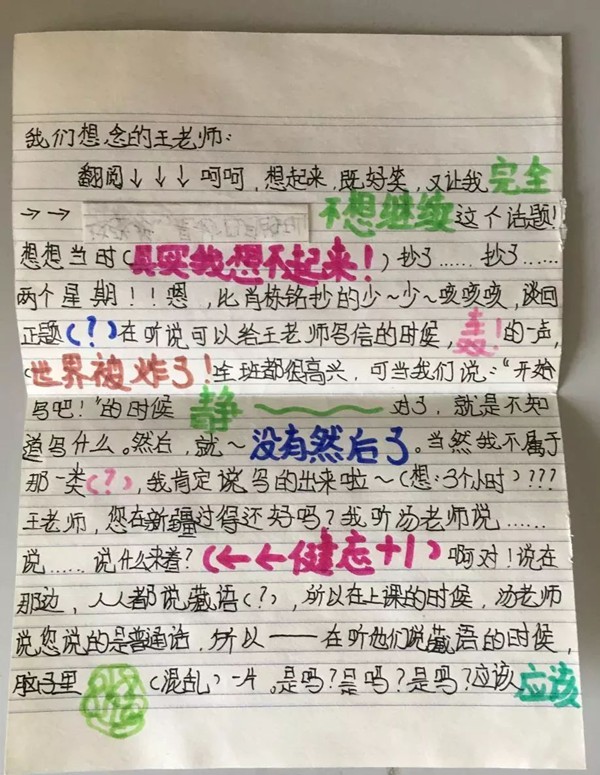 我们想念的王老师:
翻阅↓↓↓呵呵,想起来,既好笑,又让我完全
→→ 不想继续这个话题!
想想当时(其实我想不起来!)抄了……抄了……
两个星期!!嗯,比肖栋铭抄的少~少~咳咳咳,谈回
正题(?)在听说可以给王老师写信的时候,轰!的一声,
(世界被炸了!全班都很高兴,可当我们说:“开始
写吧!”的时候静 对了,就是不知
道写什么。然后,就~没有然后了。当然我不属于
那一类(?),我肯定说写的出来啦~(想:3个小时)???
王老师,您在新疆过得还好吗?我听汤老师说……
说……说什么来着?(←←健忘+1)啊对!说在
那边,人人都说藏语(?),所以在上课的时候,汤老师
说您说的是普通话,所以——在听他们说藏语的时候,
脑子里 (混乱)一片。是吗?是吗?是吗?应该应该